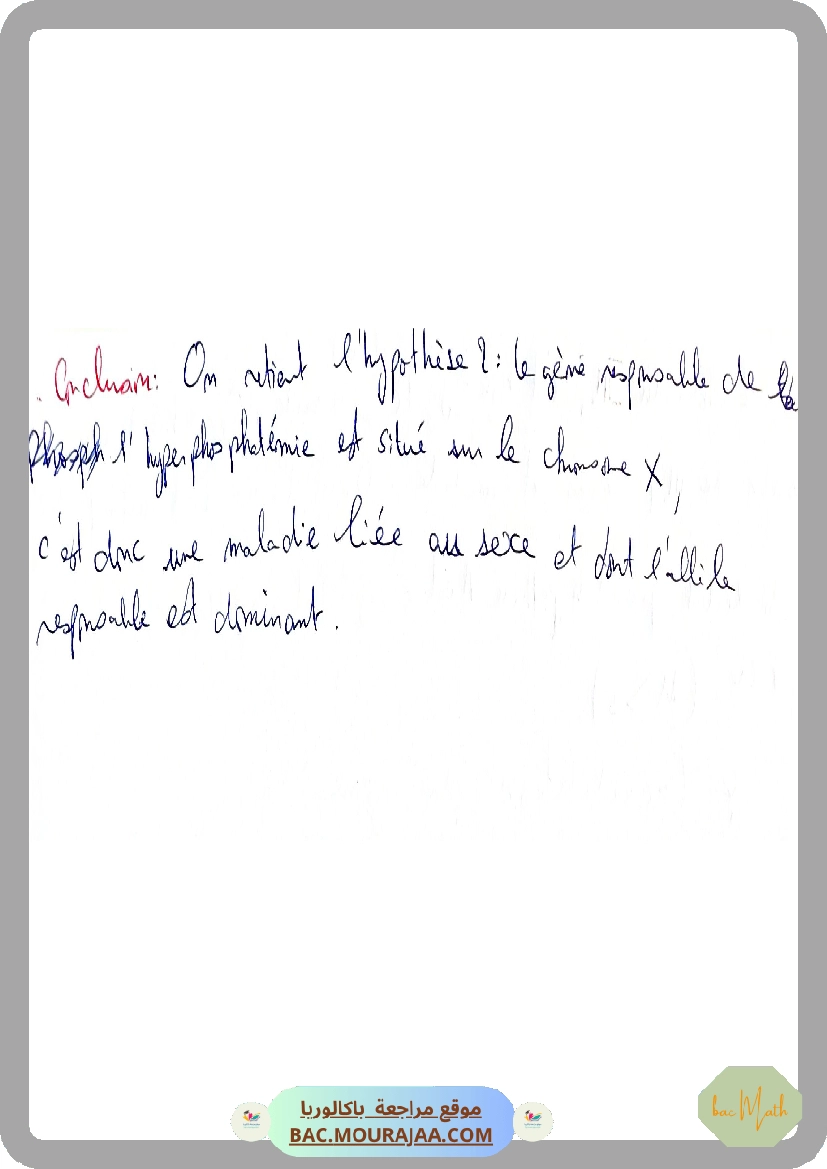 . Conclusion: On retient l'hypothèse 2: le gène responsable de la
l'hyperphosphatémie est situé sur le chromosome X,
c'est donc une maladie liée au sexe et dont l'allèle
responsable est dominant.
موقع مراجعة باكالوريا
BAC.MOURAJAA.COM
bac Math